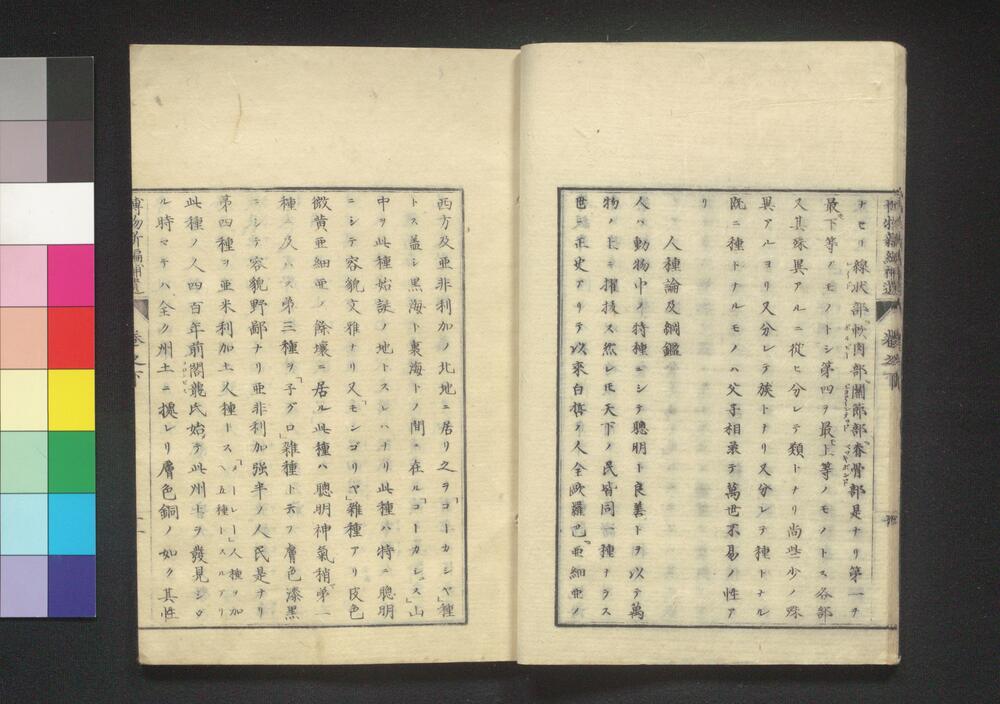 ナセリ線状部軟肉部關節部脊骨部是ナリ第一ヲ
最下等ノモノトシ第四ヲ最上等ノモノトス各部
又其殊異アルニ從ヒ分レテ類トナリ尚些少ノ殊
異アルヨリ又分レテ族トナリ又分レテ種トナル
既ニ種トナルモノハ父子相承テ萬世不易ノ性ア
リ
人種論及綱鑑
人ハ動物中ノ特種ニシテ聰明ト良善トヲ以テ萬
物ノ上ニ擢技ス然レ𪜈天下ノ民皆同一種ナラス
世ニ正史アリテ以來白晳ノ人全歐羅巴亜細亜ノ
西方及亜非利加ノ北地ニ居リ之ヲ「コーカシヤ」種
トス蓋シ黒海ト裏海トノ間ニ在ル「コーカレュス」山
中ヲ此種始誕ノ地トスレハナリ此種ハ特ニ聰明
ニシテ容貌文雅ナリ又「モンゴリヤ」雜種アリ皮色
微黄亜細亜ノ條壤ニ居ル此種ハ聰明神氣稍第一
種ニ及ハス第三種ヲ「子グロ」雜種ト云フ膚色漆黒
ニシテ容貌野鄙ナリ亜非利加強半ノ人民是ナリ
第四種ヲ亜米利加土人種トス「メーレー」人種ヲ加ヘ五種トスルアリ
此種ノ人四百年前閣龍氏始テ此州土ヲ發見シタ
ル時マテハ全ク州土ニ據レリ膚色銅ノ如ク其性
博物新編補遺 卷之下